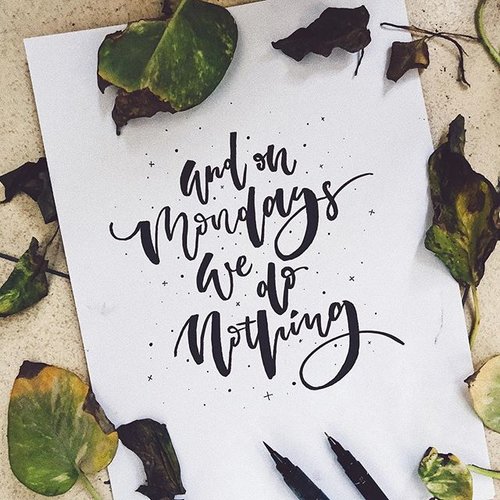 And on
Mondays
We do
Nothing